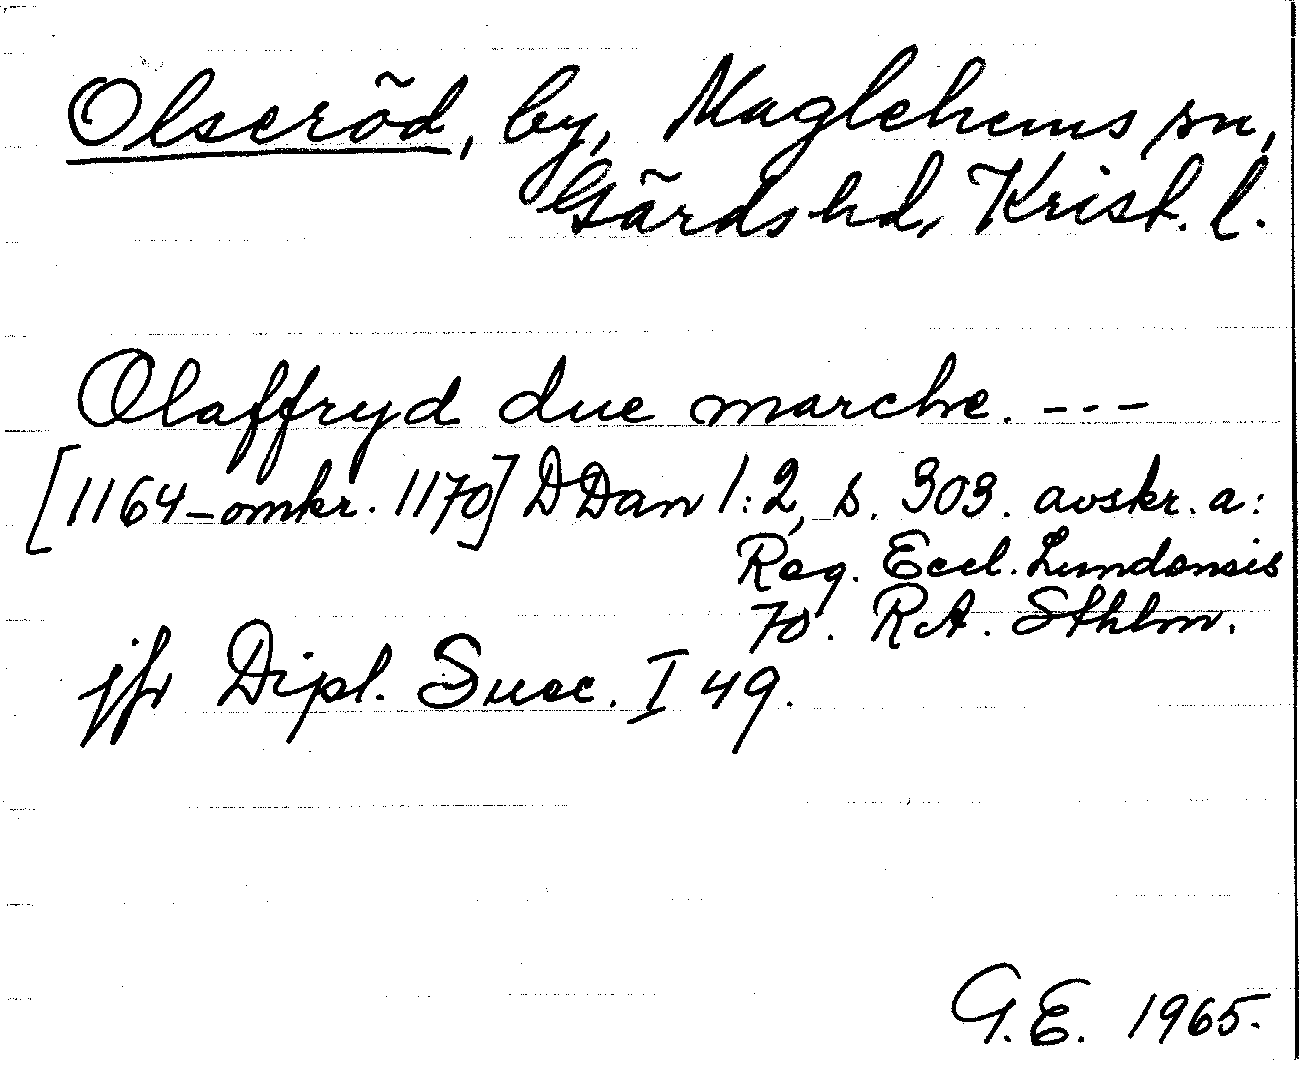 Olseröd, by, Maglehems sn,
Gärds hd, Krist. l.
Olaffryd due marche. ---
[1164-omkr. 1170] DDan 1:2, s. 303. avskr. a:
Reg. Eccl. Lundensis
70. RA. Sthlm.
jfr Dipl. Suec. I 49.
G.E. 1965.